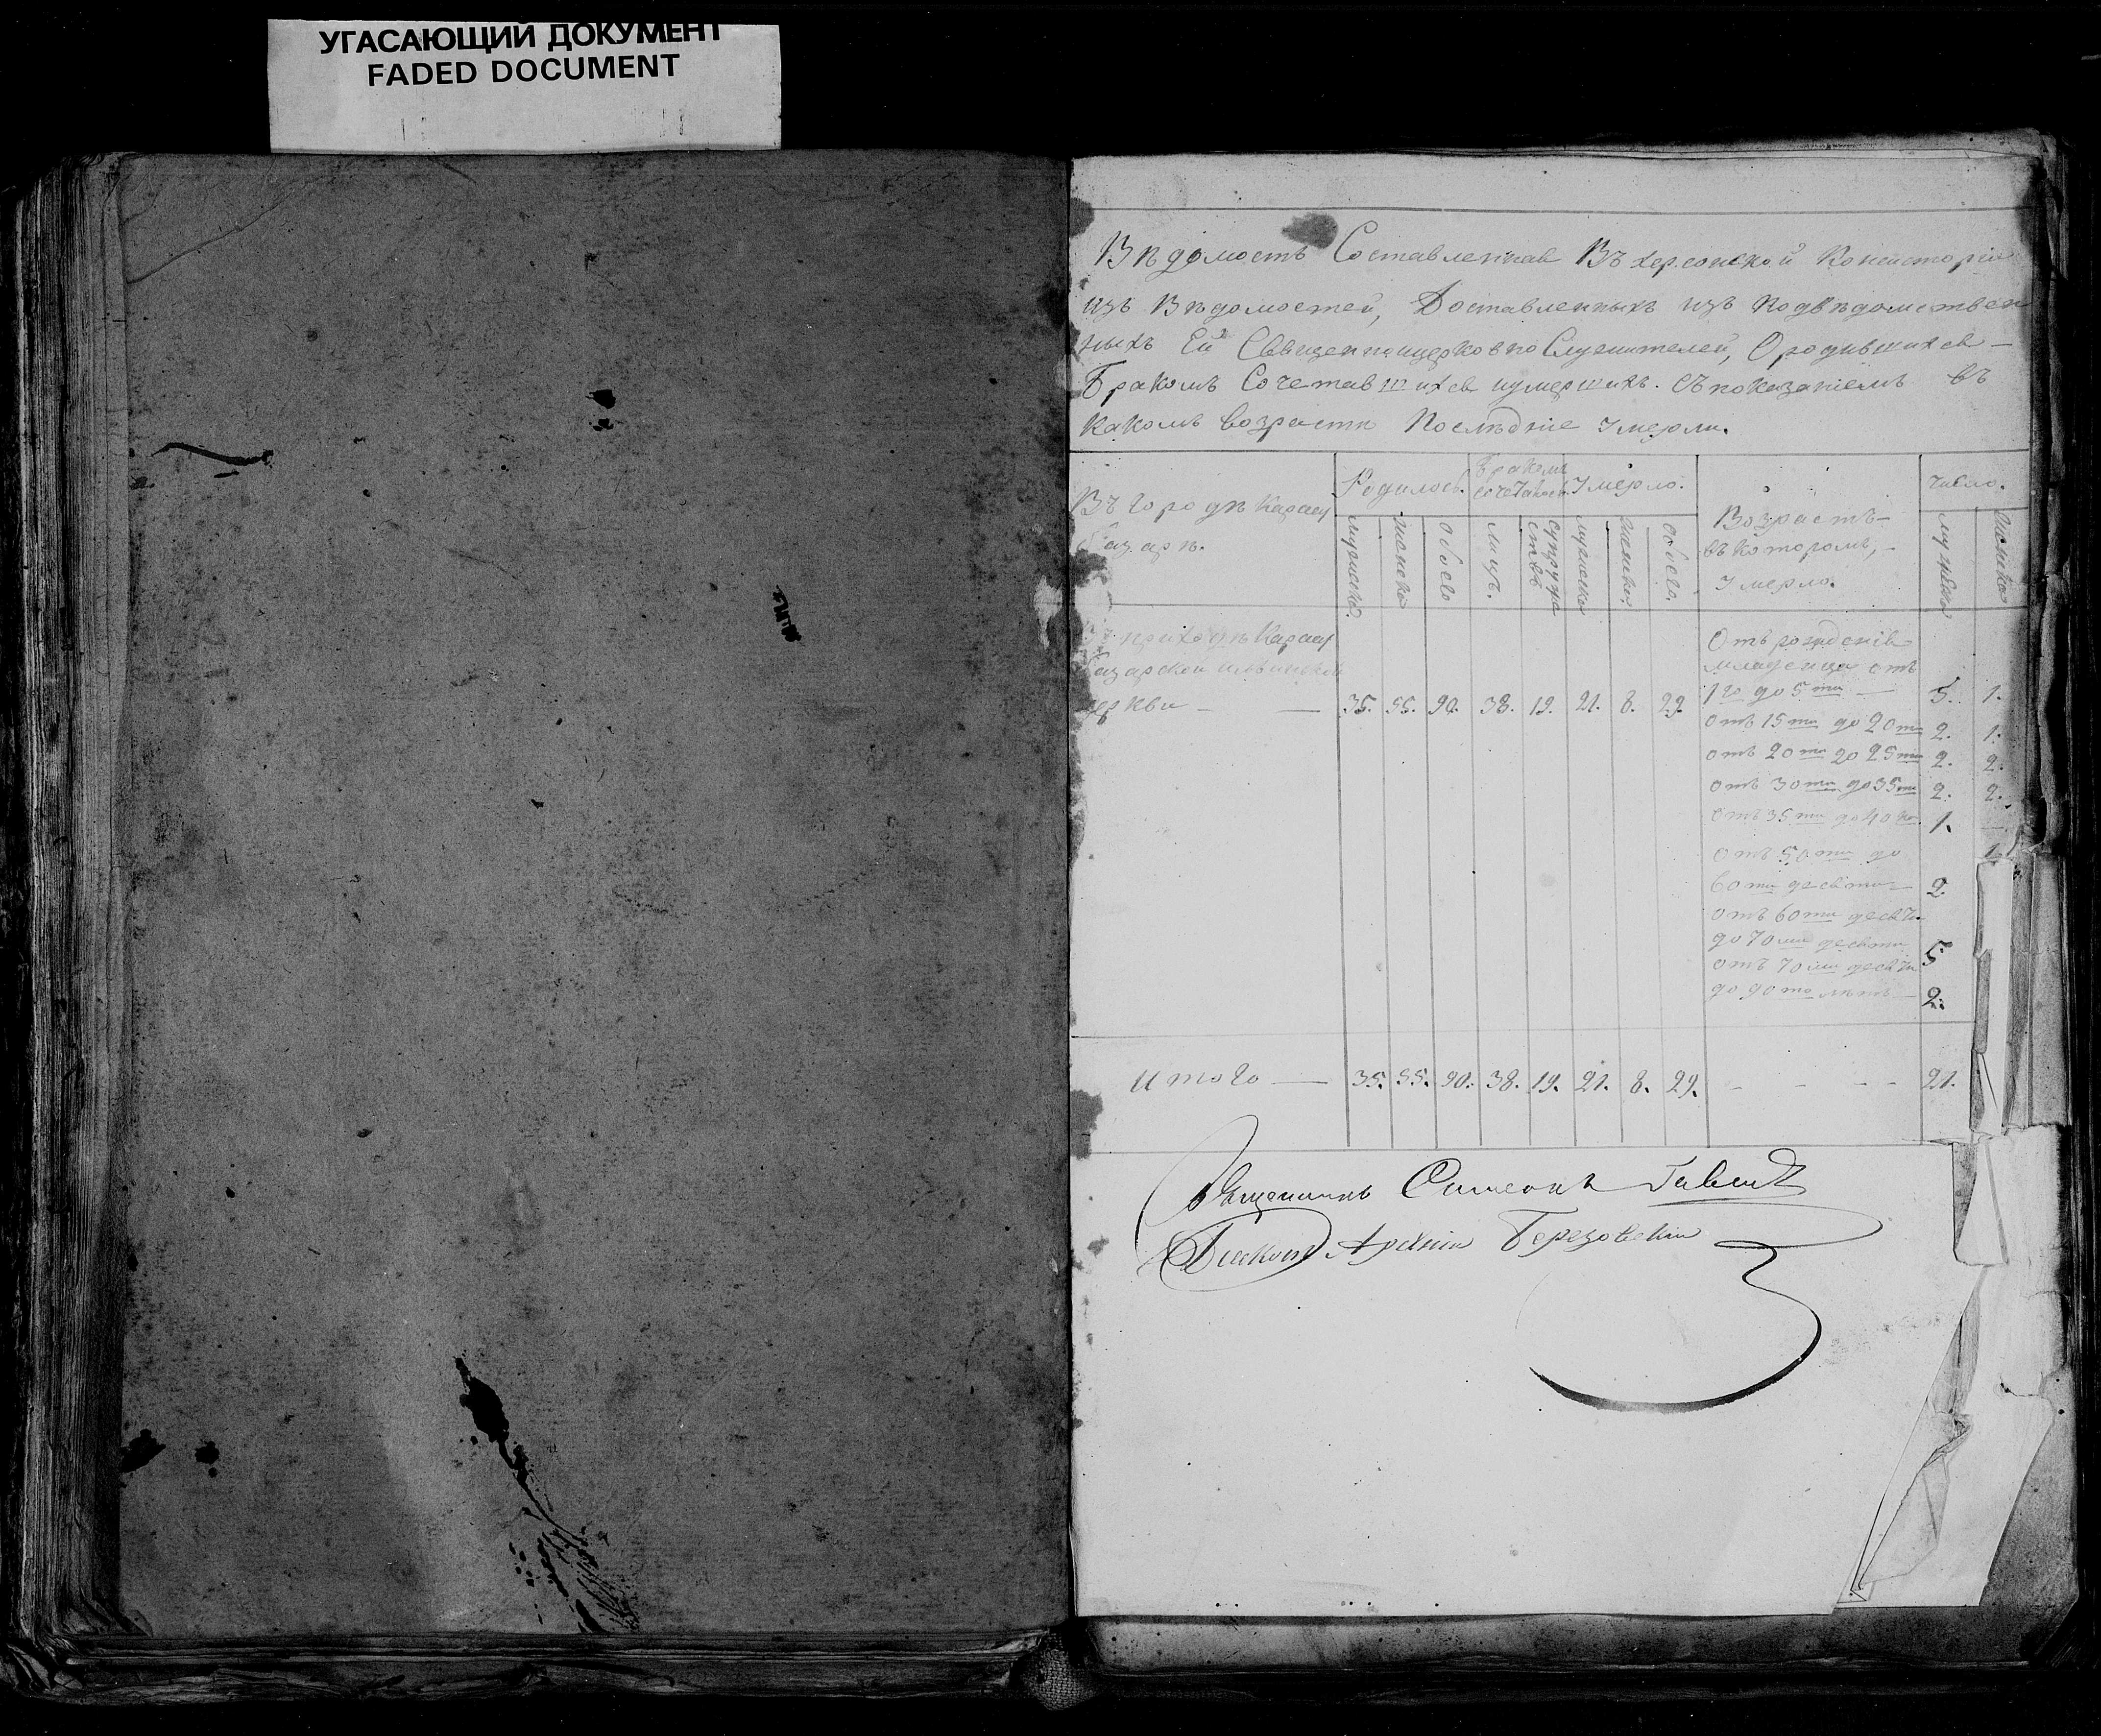 УГАСАЮЩИЙ ДОКУМЕНТ
FADED DOCUMENT
Вѣдомость Составленная Въ херсонской Консисторіи
изъ Вѣдомостей, Доставленныхъ изъ подвѣдомствен
ныхъ Ей Священноцерковно Служителей, О родившихся
Бракомъ Сочетавшихся иумершихъ. съ показаніемъ въ
какомъ возрастѣ Послѣдніе Умерли.
Въ городѣ Карасу
базарѣ.
Родилось.
Бракомъ
сочетались
Умерло.
Возрастъ
въ которомъ,
Умерло.
число.
мужеска
женска
обоего
лицъ.
супруже
ствъ
мужеска
женска
обоего.
мужеска
женска
приходѣ Карасу
базарской
церкви
35. 55. 90. 38. 19. 21. 8. 29.
Отъ рожденія
младенца отъ
1го до 5ти — 5. 1.
отъ 15ти до 20ти 2. 1.
отъ 20ти до 25ти 2. 2.
отъ 30ти до 35ти 2. 2.
отъ 35ти до 40ка 1. —
отъ 50ти до
60ти десяти 2
отъ 60ти десяти
до 70ти десяти 5
отъ 70ти десяти
до 90то лѣтъ — 2.
Итого — 35. 55. 90. 38. 19. 21. 8. 29. - - - - 21.
Священникъ Симеонъ
Березовскій